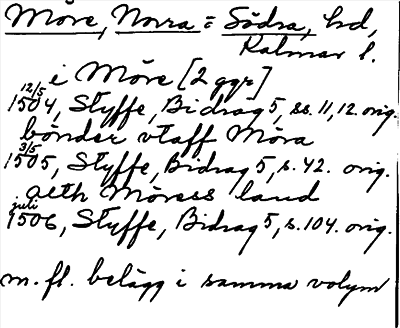 Möre, Norra o Södra, hd,
Kalmar l.
i Möre [2 ggr]
12/5 1504, Styffe, Bidrag 5, ss. 11, 12. orig.
bönder vtaff Möra
3/5 1505, Styffe, Bidrag 5, s. 42. orig.
aeth Möress land
juli 1506, Styffe, Bidrag 5, s. 104. orig.
m. fl. belägg i samma volym